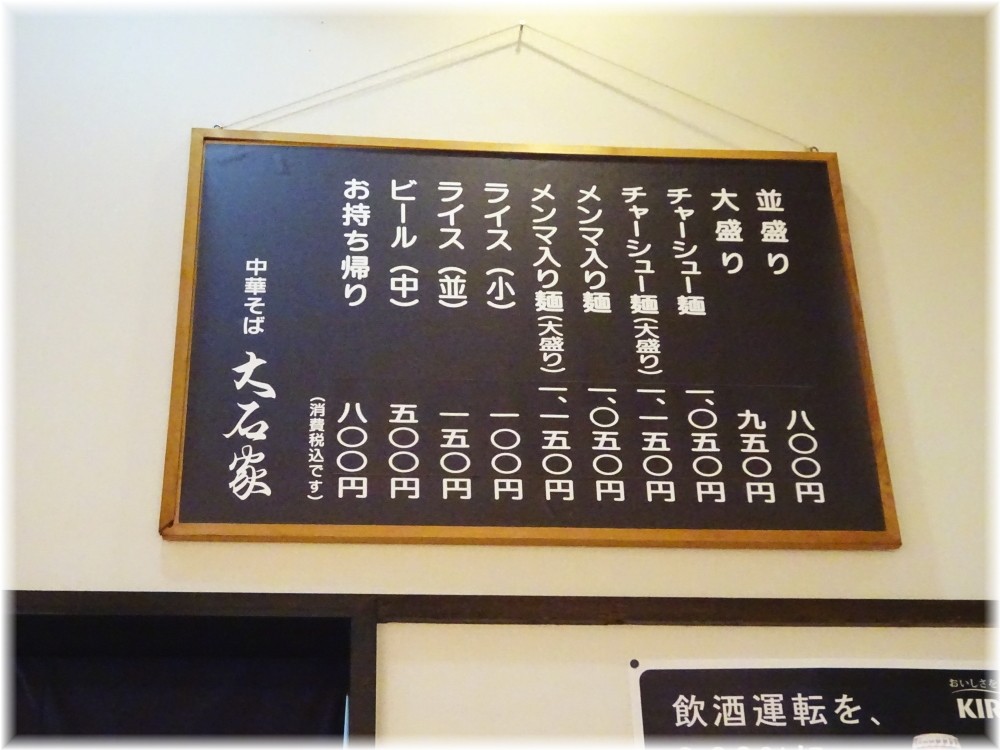 並盛り 八〇〇円
大盛り 九五〇円
チャーシュー麺 一、〇五〇円
チャーシュー麺(大盛り) 一、一五〇円
メンマ入り麺 一、〇五〇円
メンマ入り麺(大盛り) 一、一五〇円
ライス(小) 一〇〇円
ライス(並) 一五〇円
ビール(中) 五〇〇円
お持ち帰り 八〇〇円
(消費税込です)
中華そば 大石家
おいしさを
KIR
飲酒運転を、